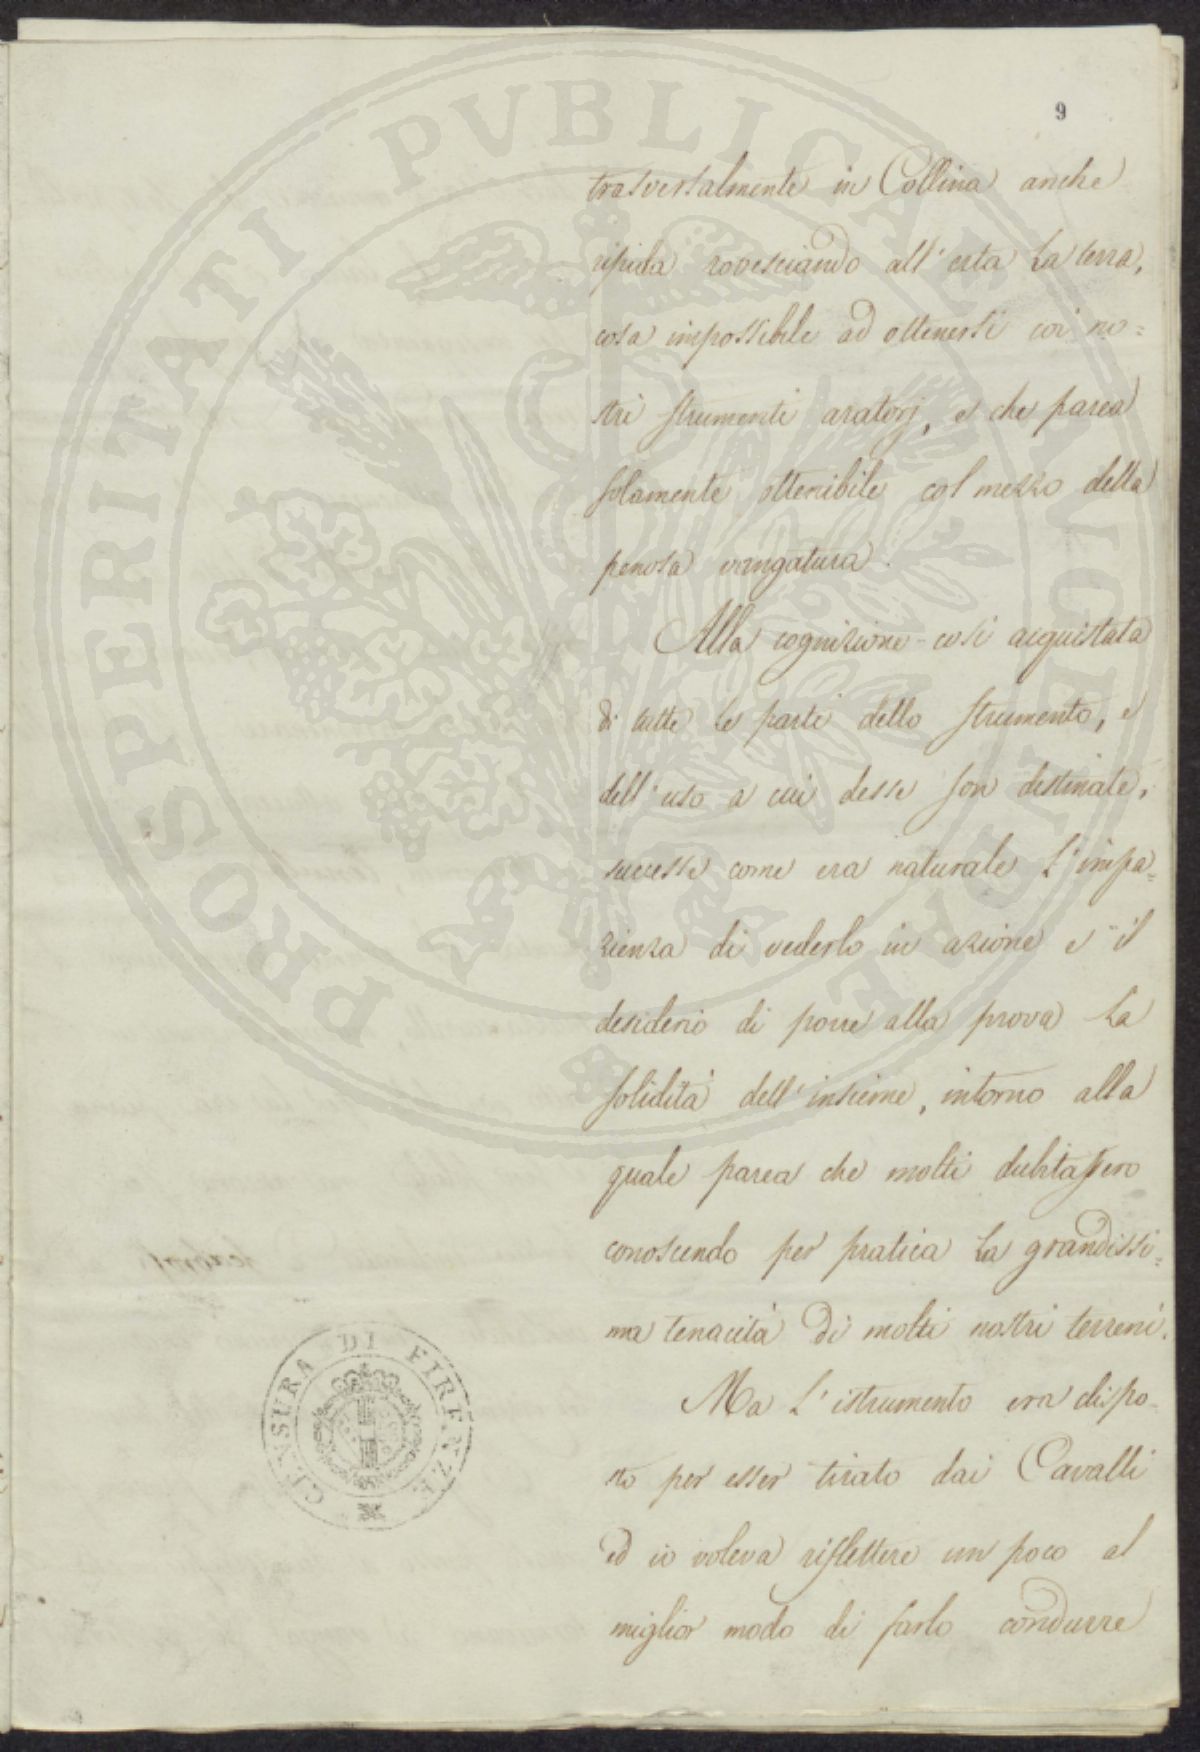 9
trasversalmente in Collina anche
ripida rovesciando all'erta la terra,
cosa impossibile ad ottenersi coi no=
stri strumenti aratorj, e che parea
solamente ottenibile col mezzo della
penosa vangatura.
Alla cognizione così acquistata
di tutte le parti dello strumento, e
dell'uso a cui desse son destinate,
successe come era naturale l'impa=
zienza di vederlo in azione e il
desiderio di porre alla prova la
solidità dell'insieme, intorno alla
quale parea che molti dubitassero
conoscendo per pratica la grandissi=
ma tenacità di molti nostri terreni.
Ma l'istrumento era dispo=
sto per esser tirato dai Cavalli
ed io voleva riflettere un poco al
miglior modo di farlo condurre
CENSURA DI FIRENZE
PROSPERITATI PVBLICAE AVGENDAE